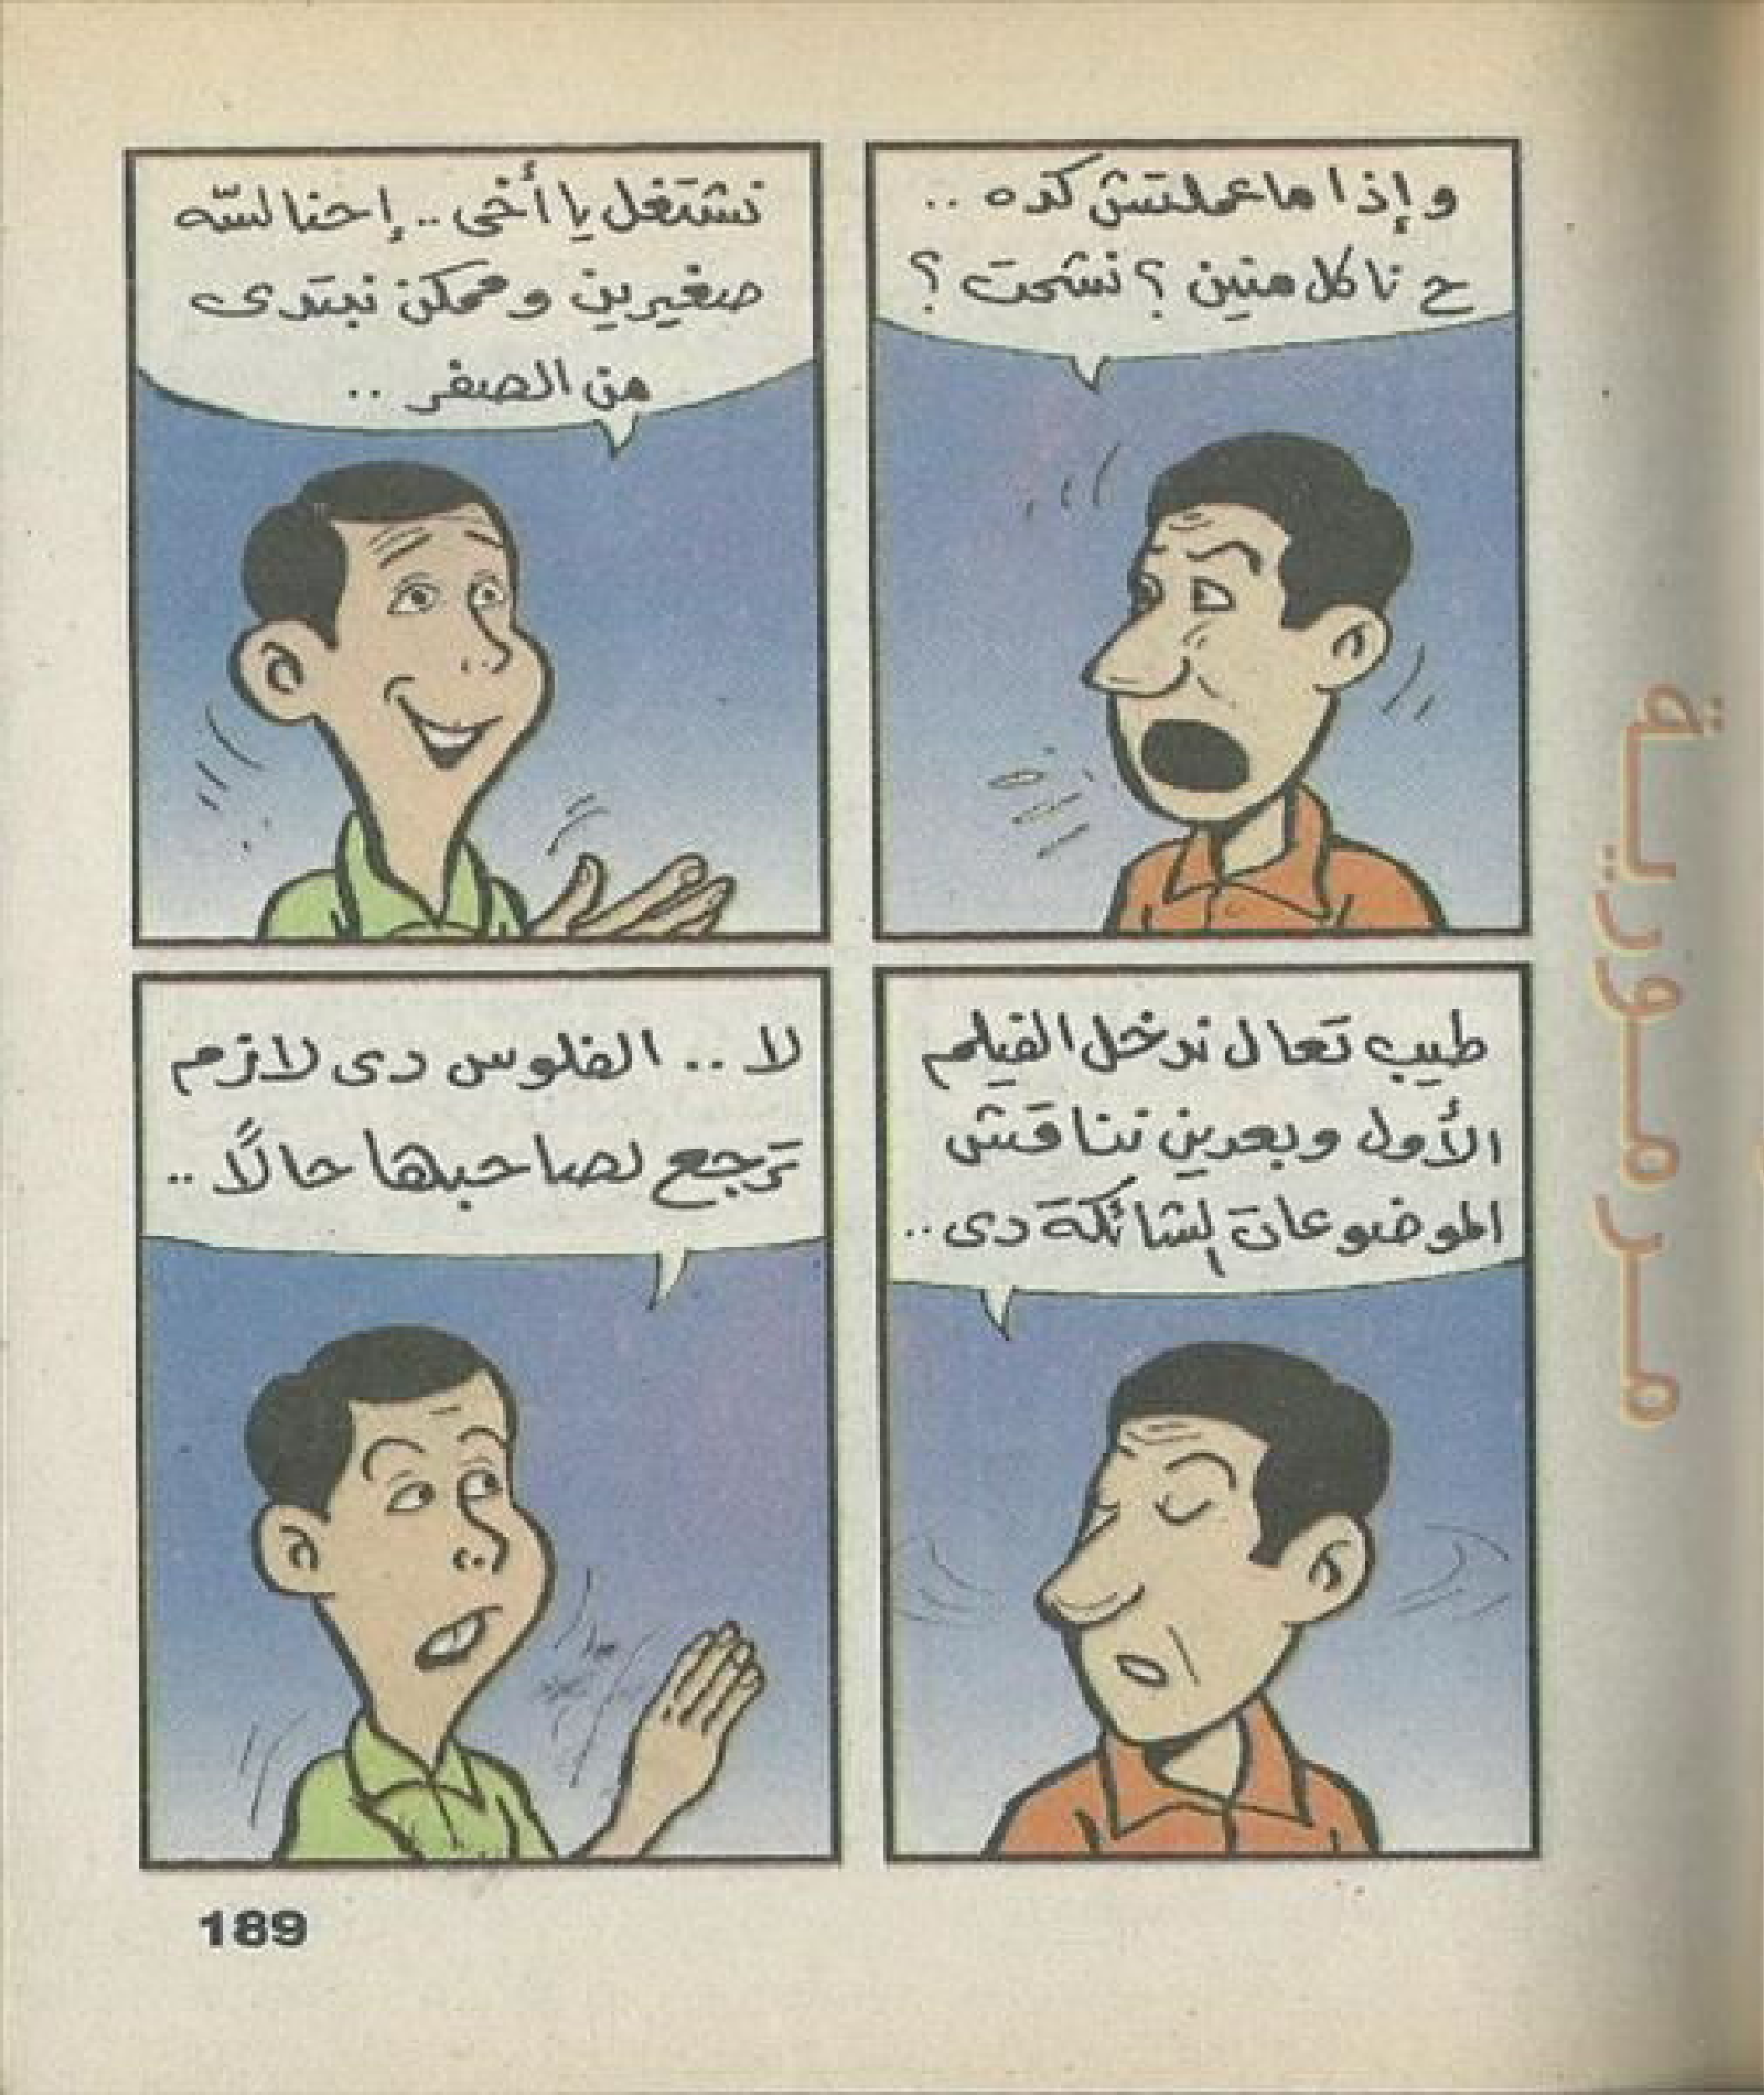 وإذا ماعملتش كده ..
ح ناكل منين ؟ نشحت ؟
نشتغل يا أخى .. إحنا لسّه
صغيرين وممكن نبتدى
من الصفر ..
طيب تعال ندخل الفيلم
الأول وبعدين نناقش
الموضوعات الشائكة دى ..
لا .. الفلوس دى لازم
ترجع لصاحبها حالاً ..
مرمورية
189